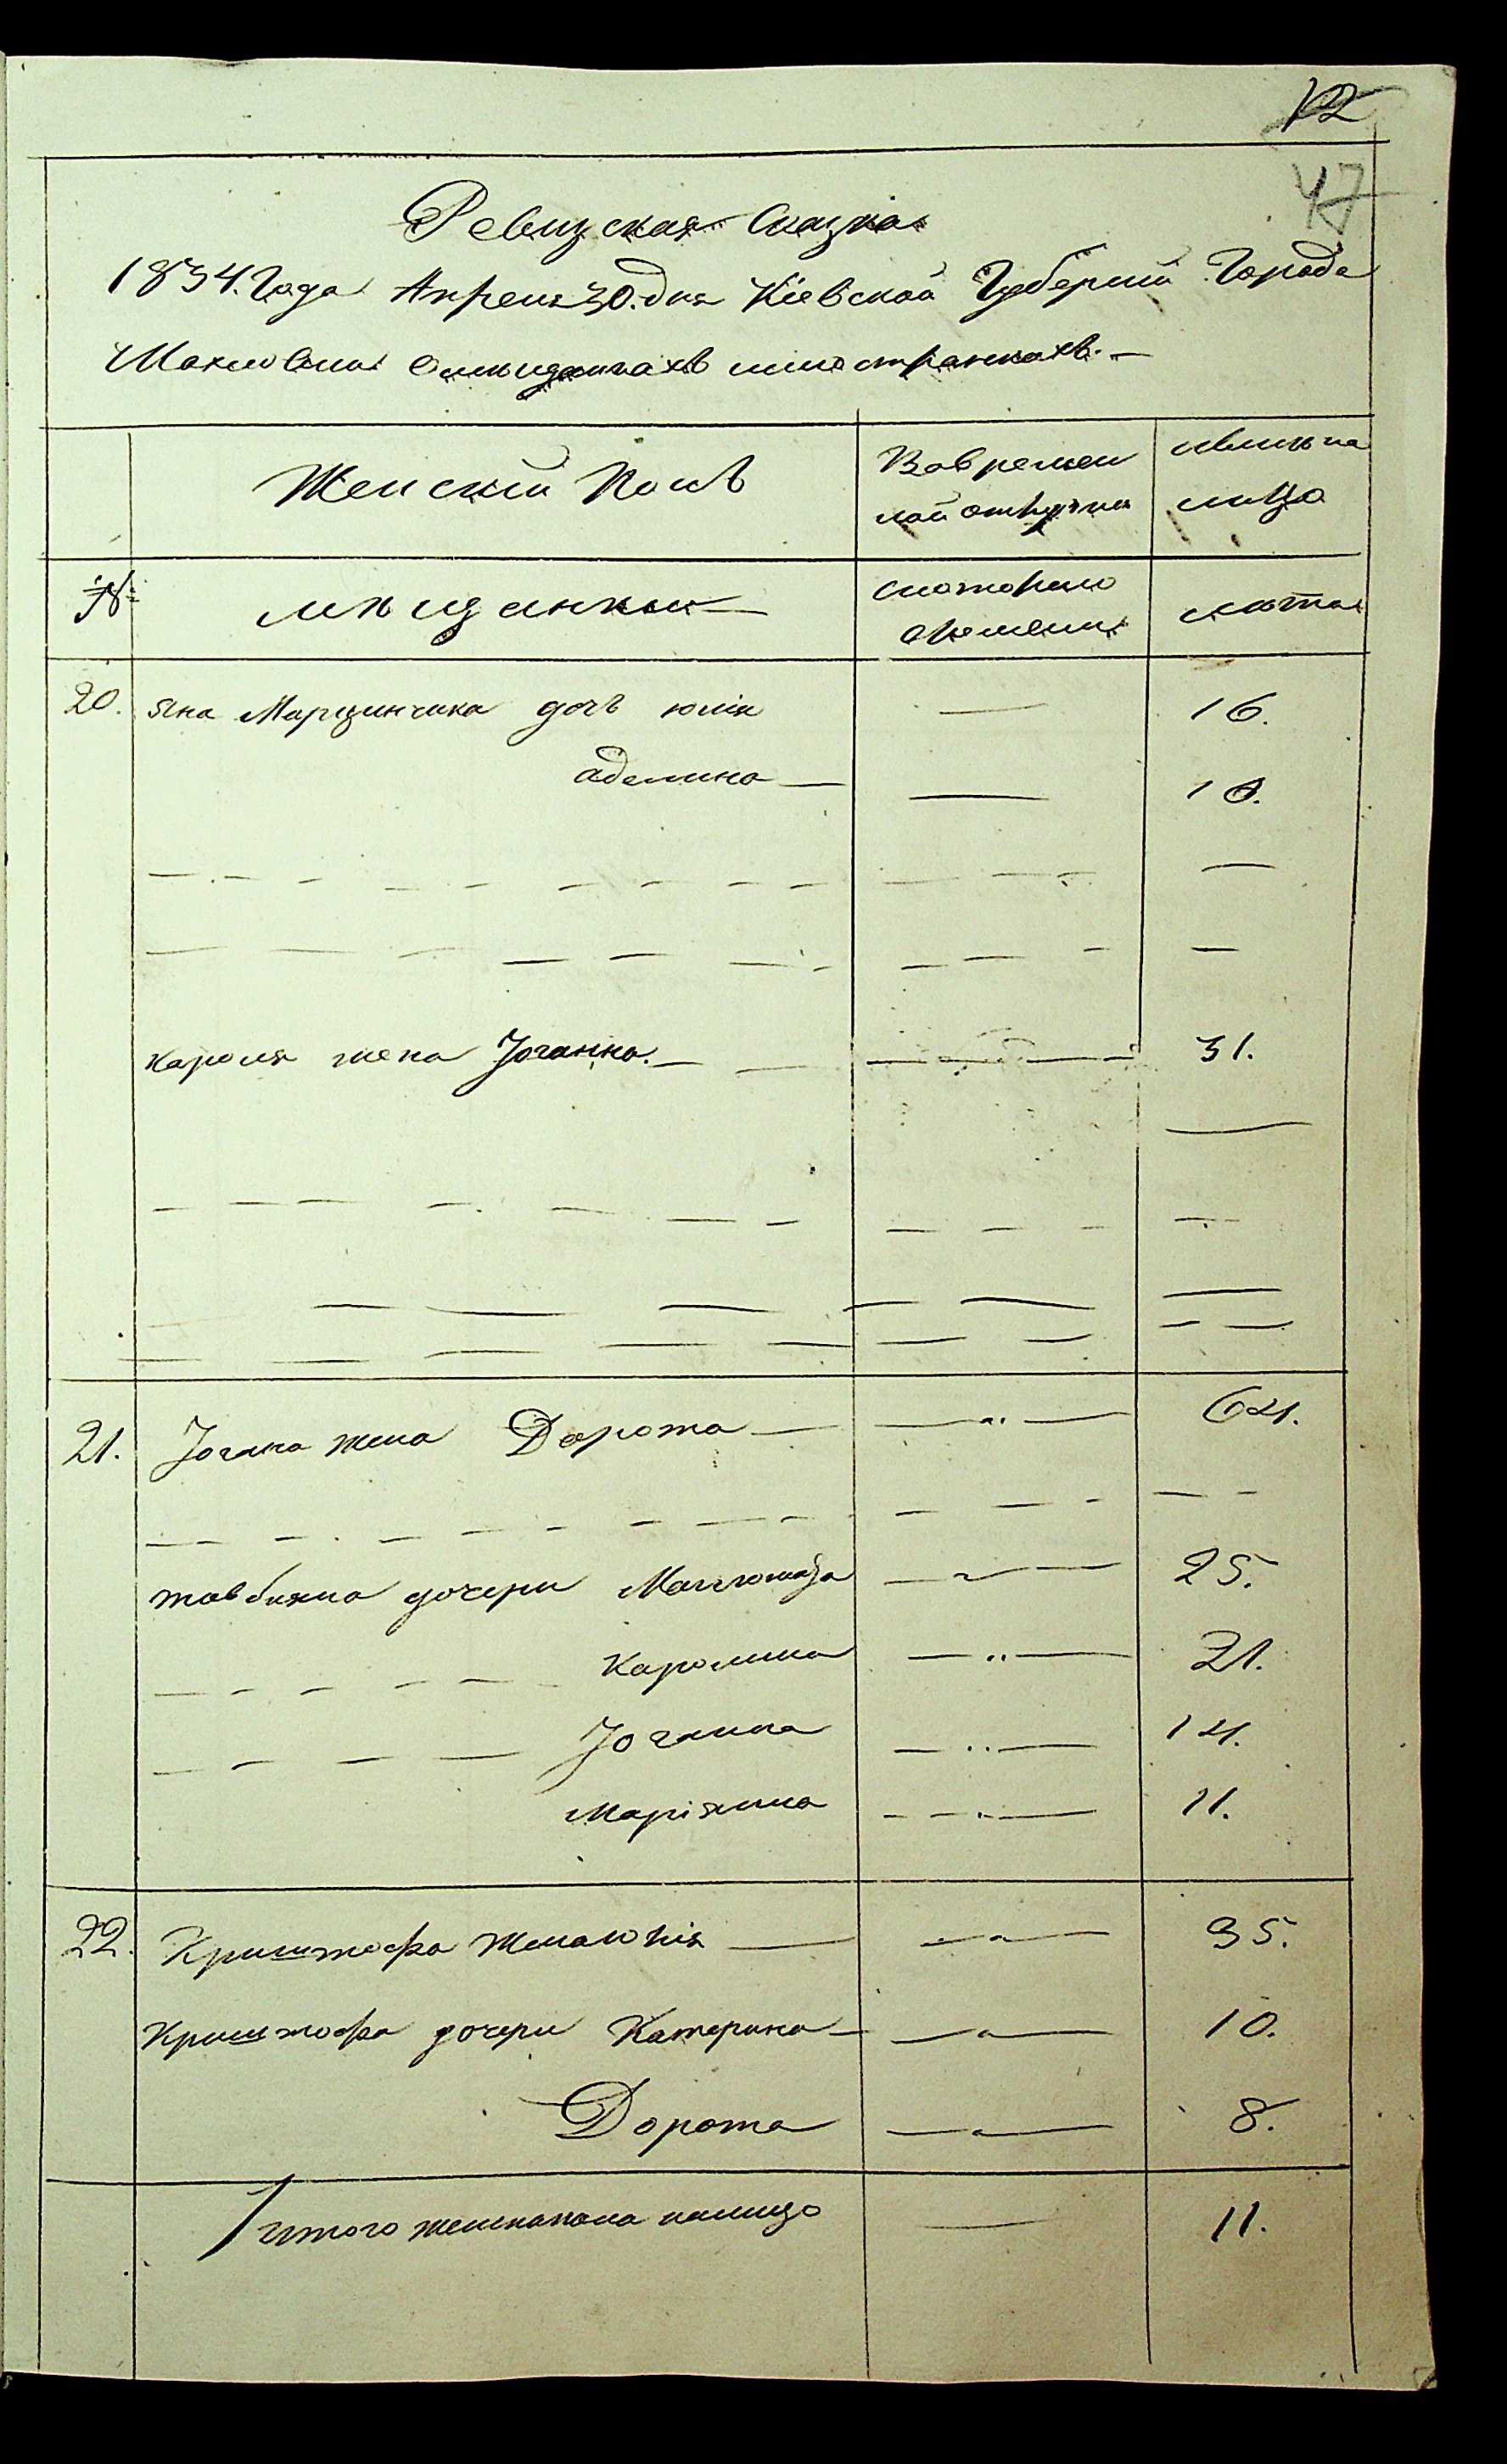 12
47
Ревизская Сказка
1834. Года Апреля 30. дня Кіевской Губерніи Города
Махновки Омѣщанахъ иностранцахъ.
Женскій Полъ
Вовремен
ной отлучки
Нынѣ на
лицо
№
мѣщанки
Скотораго
времени
лѣта
20. яна Марцинчика дочь юлія — 16.
аделина — — 10.
Кароля жена Іоганна. — 31.
21. Іогана жена Дорота — 64.
дочери 25.
Каролина — 21.
Іоганна — 14.
Маріянна — 11.
22. Криштофа жена — 35.
Криштофа дочери Катерина — 10.
Дорота — 8.
Итого женскапола налицо — 11.